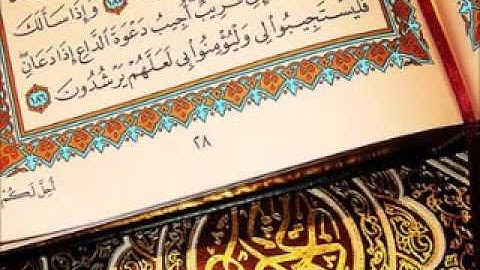 ١٨٥ وَإِذَا سَأَلَكَ
قَرِيبٌ أُجِيبُ دَعْوَةَ الدَّاعِ إِذَا دَعَانِ
فَلْيَسْتَجِيبُوا لِي وَلْيُؤْمِنُوا بِي لَعَلَّهُمْ يَرْشُدُونَ ١٨٦
٢٨
أُحِلَّ لَكُمْ